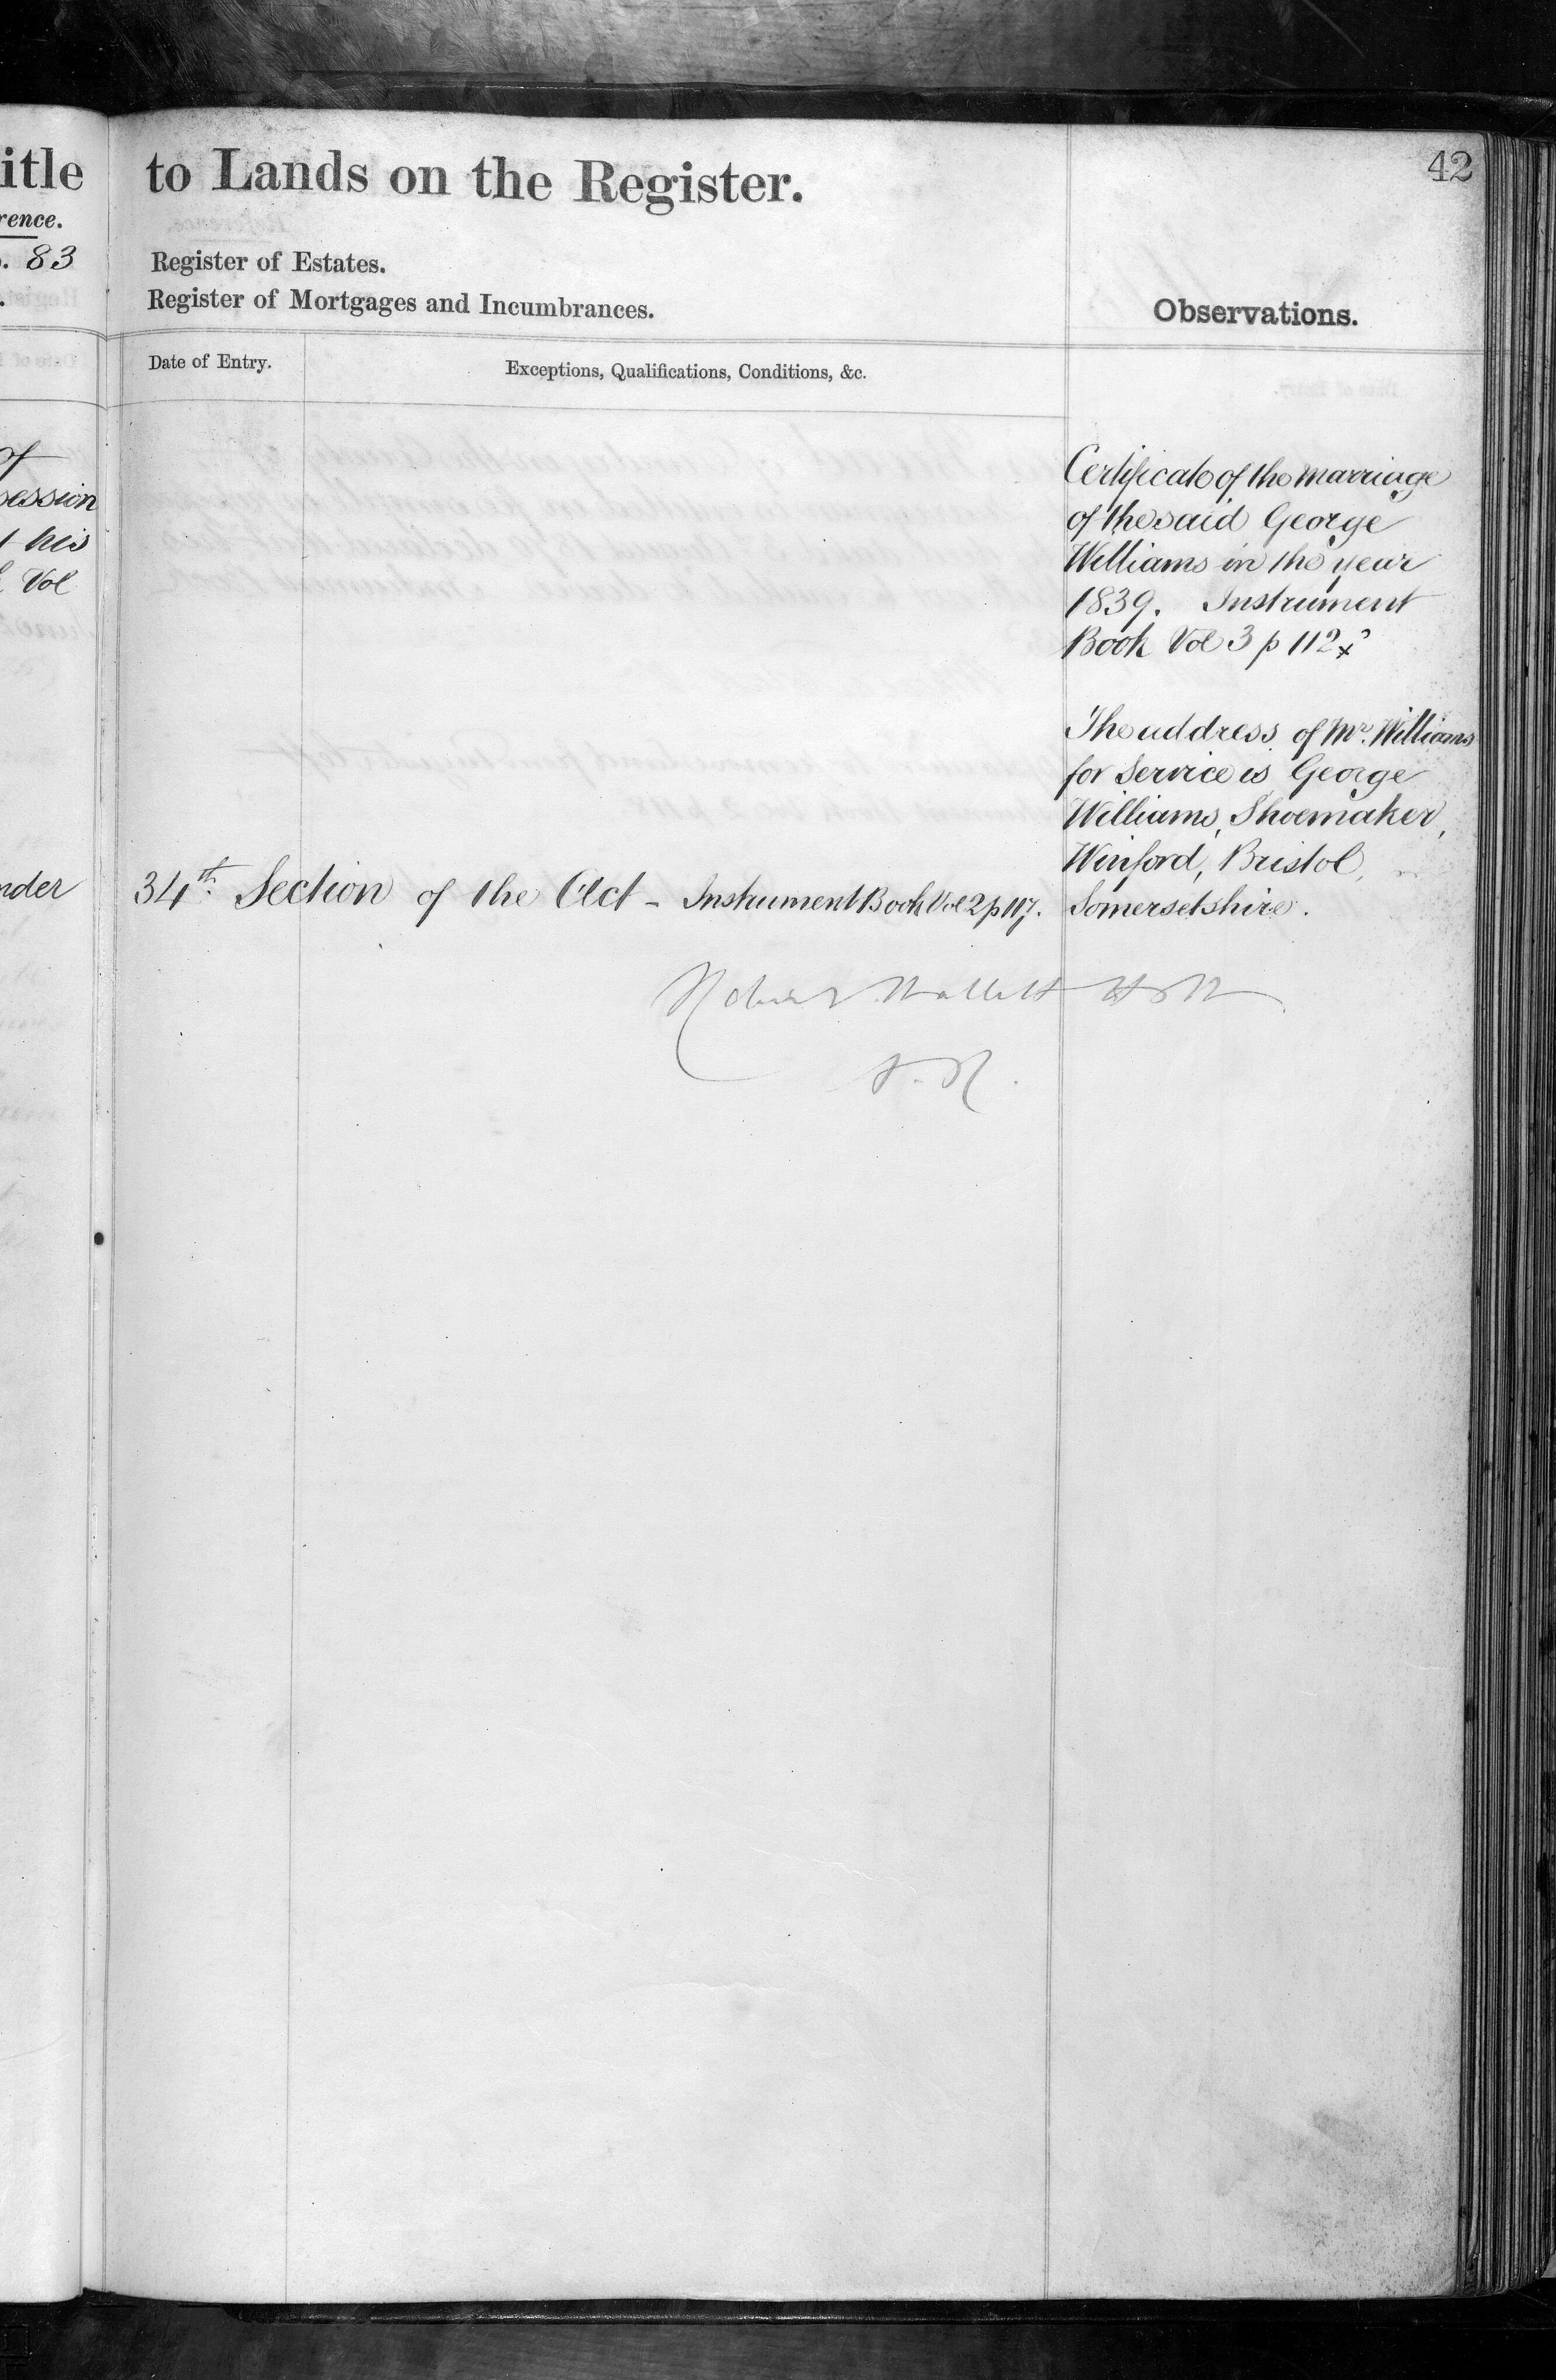 itle
rence.
. 83
.
of
session
t his
Vol
nder
to Lands on the Register.
42
Register of Estates.
Register of Mortgages and Incumbrances.
Observations.
Date of Entry.
Exceptions, Qualifications, Conditions, &c.
Certificate of the marriage
of the said George
Williams in the year
1839. Instrument
Book Vol 3 p 112
The address of Mr. Williams
for Service is George
Williams, Shoemaker,
Winford, Bristol,
34th Section of the Act - Instrument Book Vol 2 p 117.
Somersetshire.